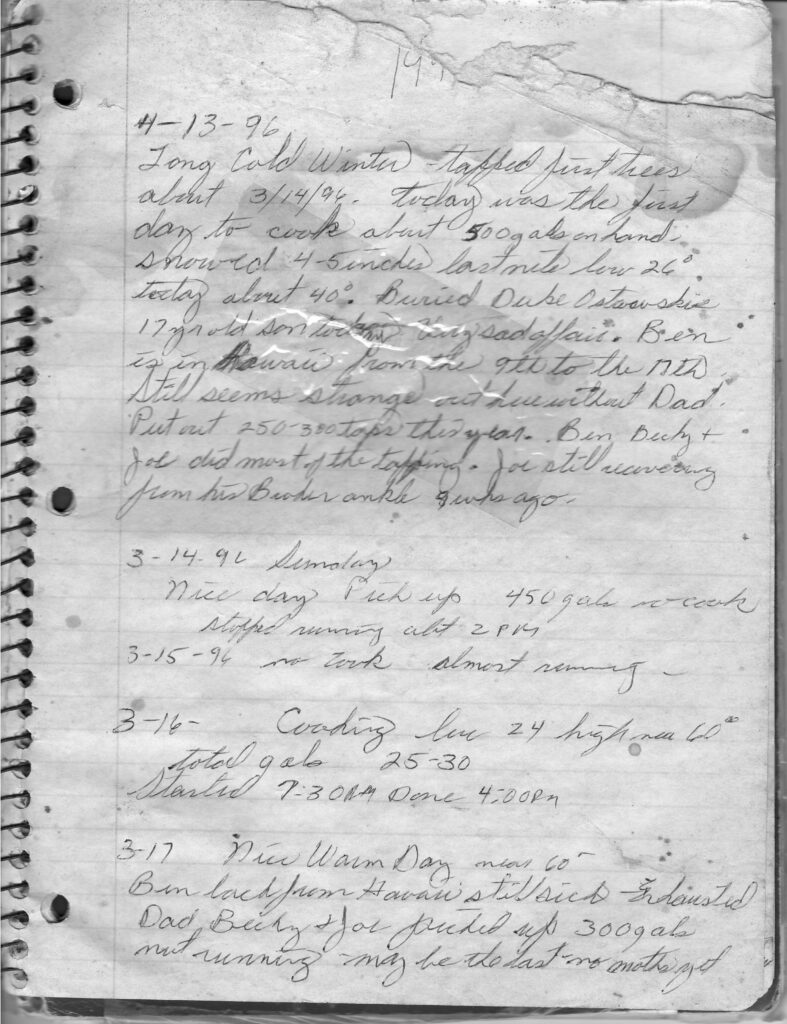 4-13-96
Long Cold Winter - tapped first trees
about 3/14/96. today was the first
day to cook about 500 gals on hand.
snowed 4-5 inches last nite low 26°
today about 40°. Buried Duke
17 yr old son today Very sad affair. Ben
is in Hawaii from the 9th to the 17th
Still seems strange out here without Dad.
Put out 250-300 taps this year. Ben Becky +
Joe did most of the tapping. Joe still recovering
from his Broken ankle 9 wks ago.
3-14-96 Sunday
Nice day Pick up 450 gals no cook
stopped running abt 2 PM
3-15-96 no cook almost running -
3-16- Cooking low 24 high near 60°
total gals 25-30
Started 7:30AM Done 4:00PM
3-17 Nice Warm Day near 60°
Ben back from Hawaii still sick - Exhausted
Dad Becky + Joe picked up 300 gals
not running - may be the last - no moths yet